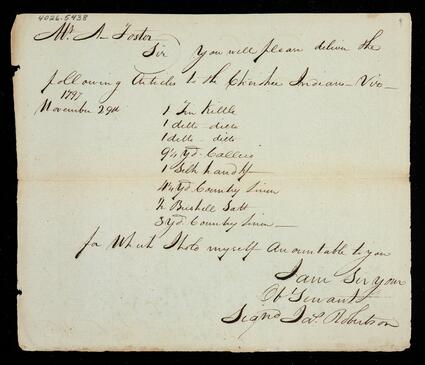 4026.5438
Mr. A Foster
Sir You will please deliver the
following Articles to the Cherokee Indians - Viz -
1797
November 29th 1 Tin Kettle
1 ditto - ditto
1 ditto - ditto
9 1/4 Yd. Callico
1 Silk handkf
4 1/2 Yd Country Linen
1/2 Bushell Salt
3 Yd. Country Linen
for Which I hold myself Accountable to you
I am Sir your
Ob Servant
Signd Jas. Robertson